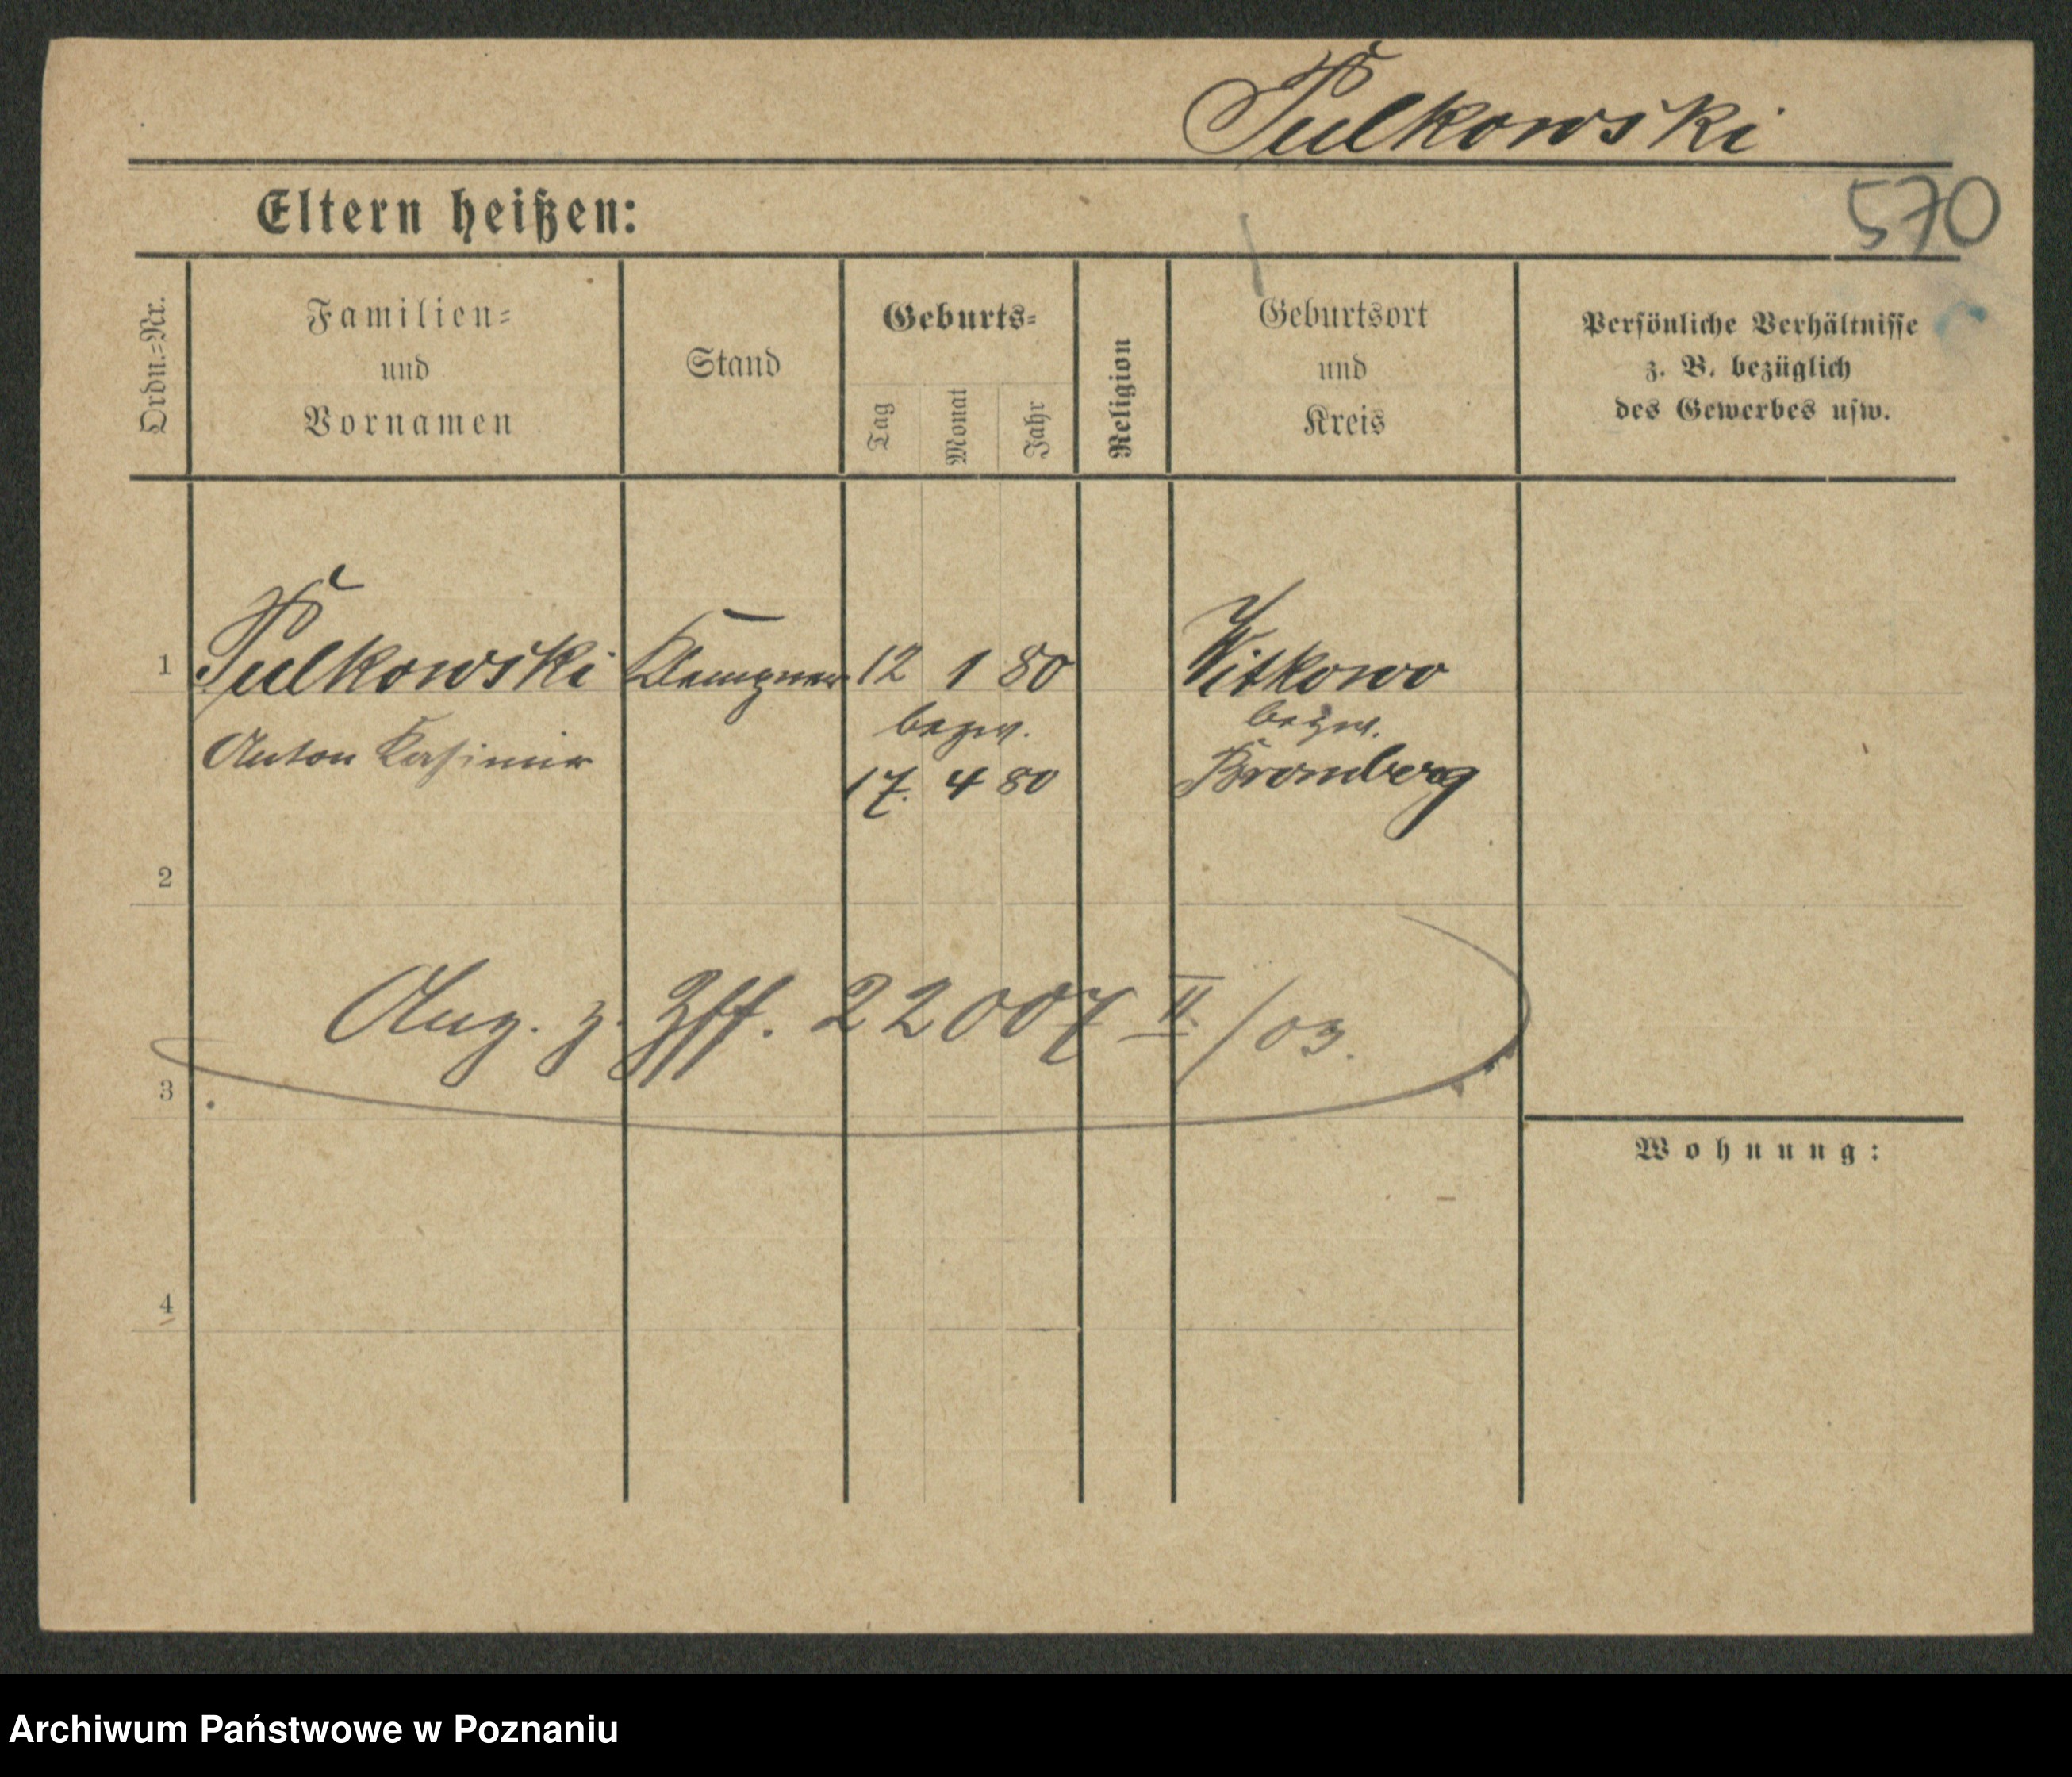 Pulkowski
570
Eltern heißen:
Ordn.=Nr.
Familien=
und
Vornamen
Stand
Geburts=
Tag
Monat
Jahr
Religion
Geburtsort
und
Kreis
Persönliche Verhältnisse
z. B. bezüglich
des Gewerbes usw.
1 Pulkowski Klempner 12 1 80 Witkowo
bezw. bezw.
Anton Kasimir 17. 4 80 Bromberg
2
Ang. z. Zff. 22007 II/03.
3
Wohnung:
4
Archiwum Państwowe w Poznaniu